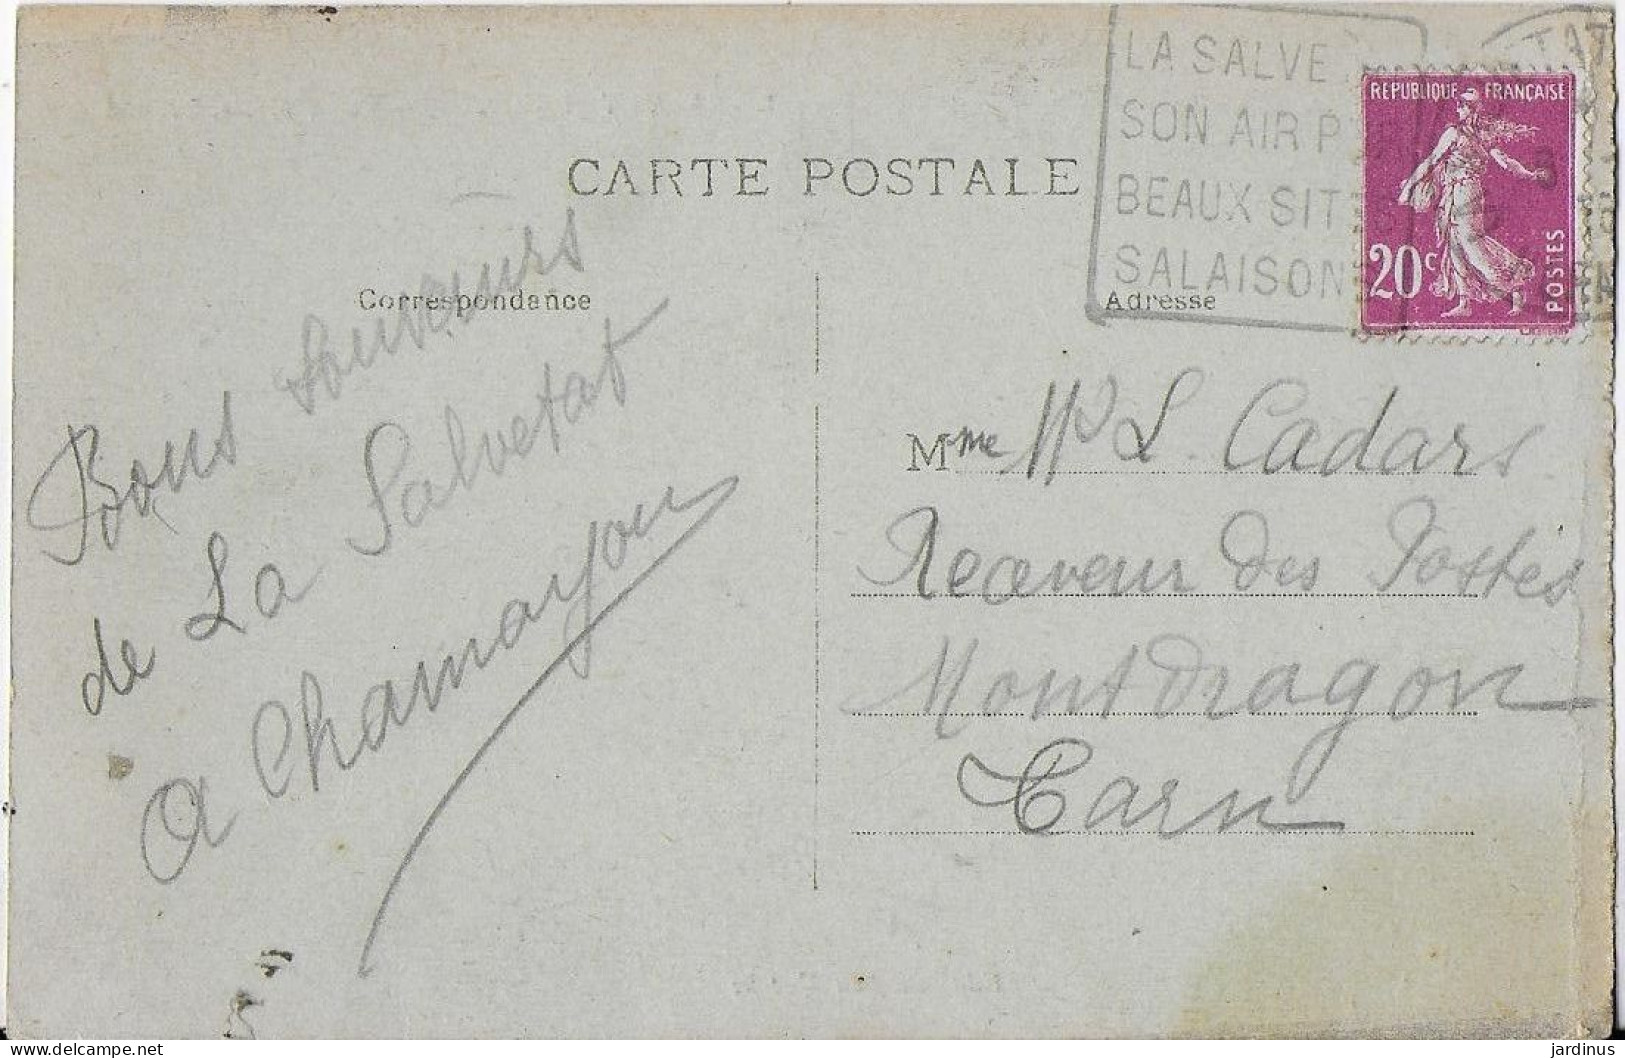 LA SALVE
SON AIR PUR
BEAUX SITES
SALAISONS
TAT
REPUBLIQUE FRANÇAISE
20c
POSTES
CARTE POSTALE
Correspondance
Adresse
Bons souvenirs
de La Salvetat
A Chamayou
Mme Md L. Cadars
Receveur des Postes
Montdragon
Tarn
jardinus